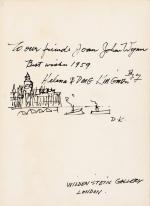 To our friends Joan John Wynn
Best wishes 1959
Helena &
D.K
WILDENSTEIN GALLERY
LONDON.